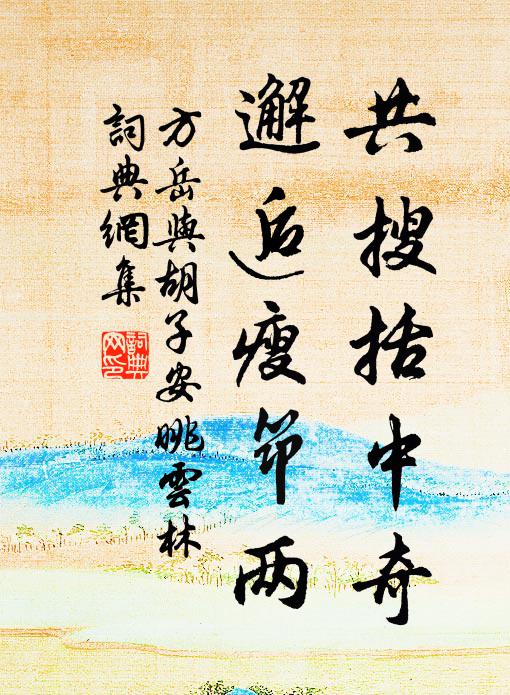 共搜括中奇
邂逅瘦笻两
方岳與胡子安眺雲林
詞典網集
詞典网印